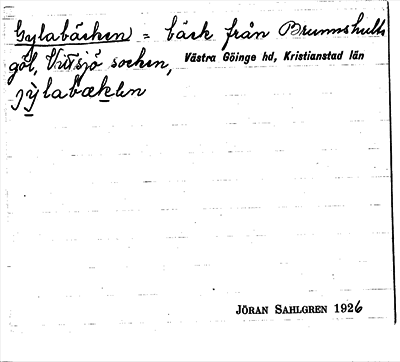 Gylabäcken = bäck från Brumshults
göl, Vittsjö socken, Västra Göinge hd, Kristianstad län
jỳlabæken
JÖRAN SAHLGREN 1926